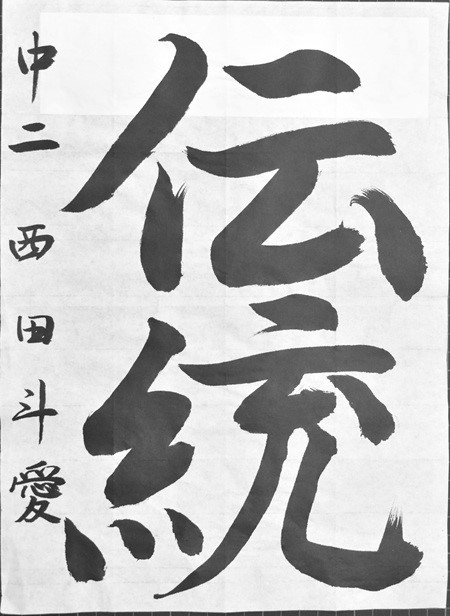 伝統
中二 西田斗愛